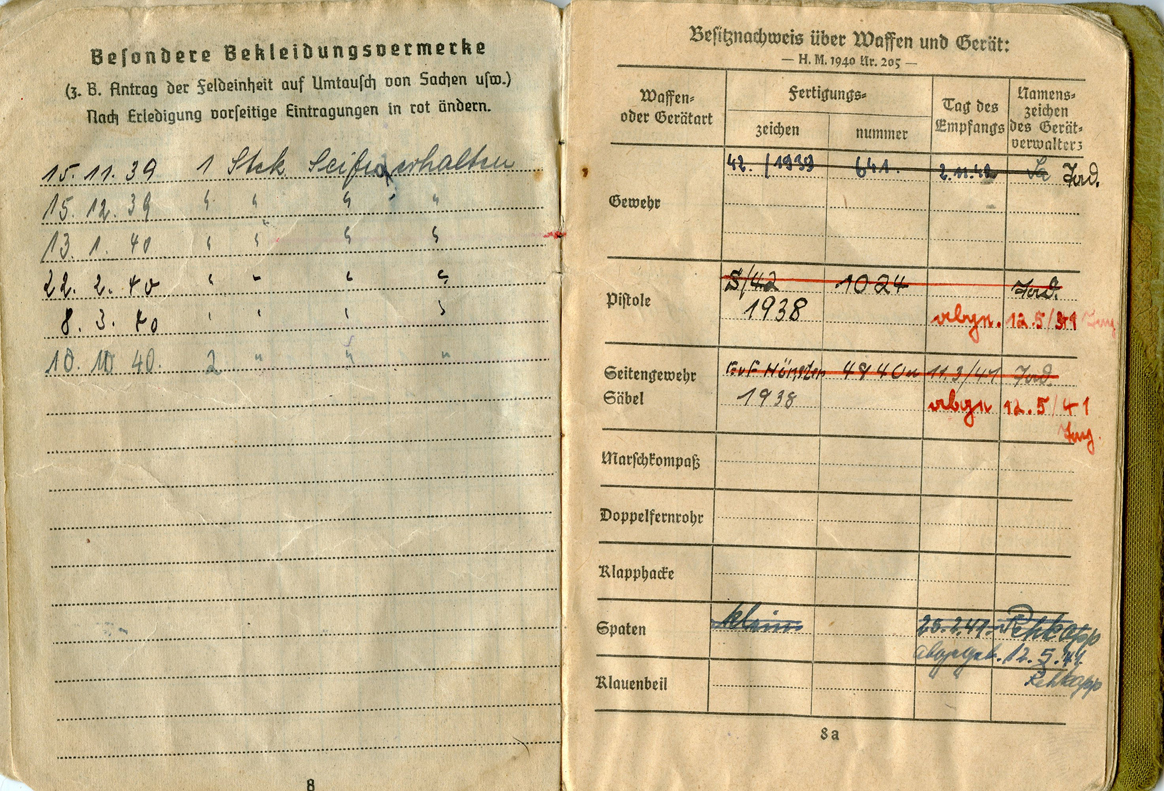 Besondere Bekleidungsvermerke
(z. B. Antrag der Feldeinheit auf Umtausch von Sachen usw.)
Nach Erledigung vorseitige Eintragungen in rot ändern.
15. 11. 39 1 Stck Seife erhalten
15. 12. 39 " " " "
13. 1. 40 " " " "
22. 2. 40 " " " "
8. 3. 40 " " " "
10. 10 40. 2 " " "
8
Besitznachweis über Waffen und Gerät:
— H. M. 1940 Nr. 205 —
Waffen- oder Gerätart
Fertigungs-
zeichen
nummer
Tag des Empfangs
Namens-zeichen des Gerät-verwalters
Gewehr
42. /1939 641.
Pistole
S/42 1024
1938 abgn. 12.5/41
Seitengewehr
4840 11.3/41
Säbel
1938 abgn 12.5/41
Marschkompaß
Doppelfernrohr
Klapphacke
Spaten
klein 25.2.41
abgegeb. 12.5.41
Klauenbeil
8a